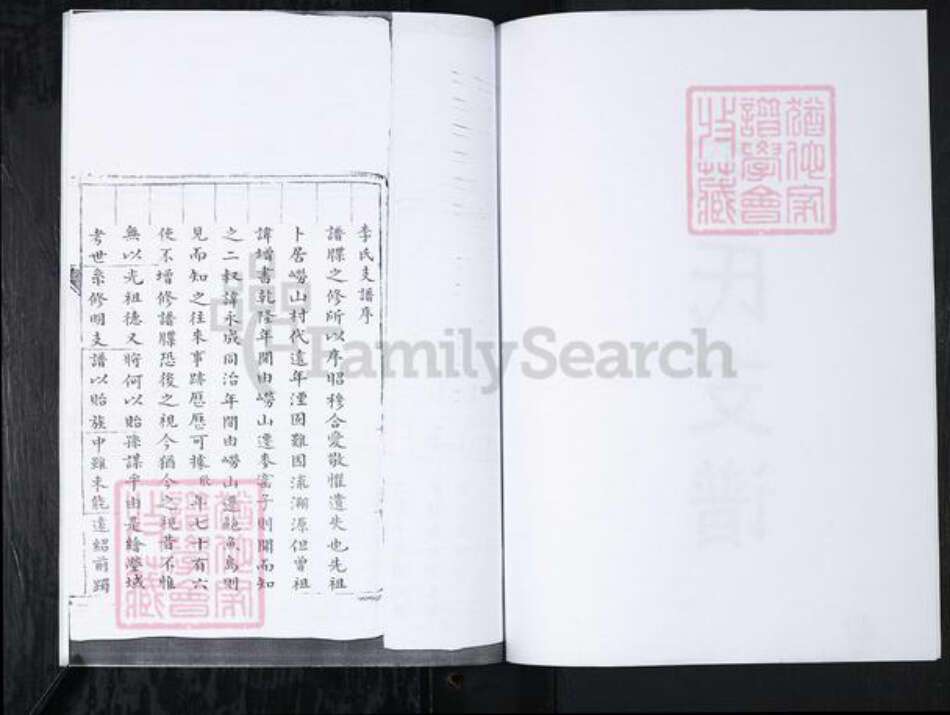 李氏支譜序
譜牒之修所以序昭穆合愛敬懼遺失也先祖
卜居嶗山村代遠年湮固難因流溯源但曾祖
諱增書乾隆年間由嶗山遷麥窰子則聞而知
之二叔諱永成同治年間由嶗山遷鮑魚島則
見而知之往來事跡歷歷可據 年七十有六
使不增修譜牒恐後之視今猶今之視昔不惟
無以光祖德又將何以貽孫謀乎由是繪塋域
考世系修明支譜以貽族中雖未能遠紹前躅
猶他家
譜學會
收藏
猶他家
譜學會
收藏
氏
支
譜
FamilySearch